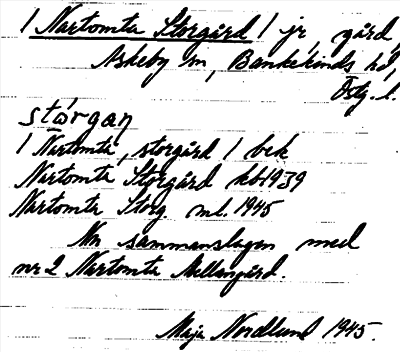 1 Nartomta Storgård 1 jr, gård,
Askeby sn, Bankekinds hd,
Östg. l.
stórgaṇ
1 Nartomta, storgård 1 bek
Nartomta Storgård kb 1939
Nartomta Storg ml. 1945
Nr sammanslagen med
nr 2 Nartomta Mellangård.
Maja Nordlund 1945.